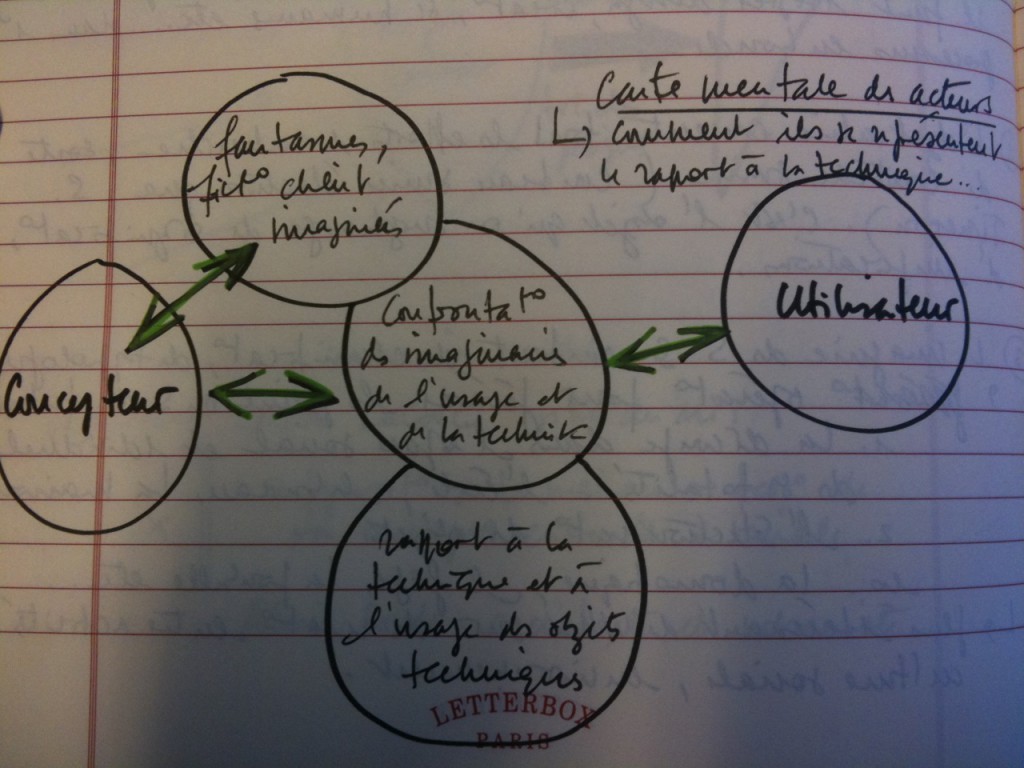 Carte mentale des acteurs
↳ comment ils se représentent
le rapport à la technique...
fantasmes,
fict° client
imaginés
Concepteur
Confrontat°
des imaginaires
de l'usage et
de la technik
Utilisateur
rapport à la
technique et à
l'usage des objets
techniques
LETTERBOX
PARIS